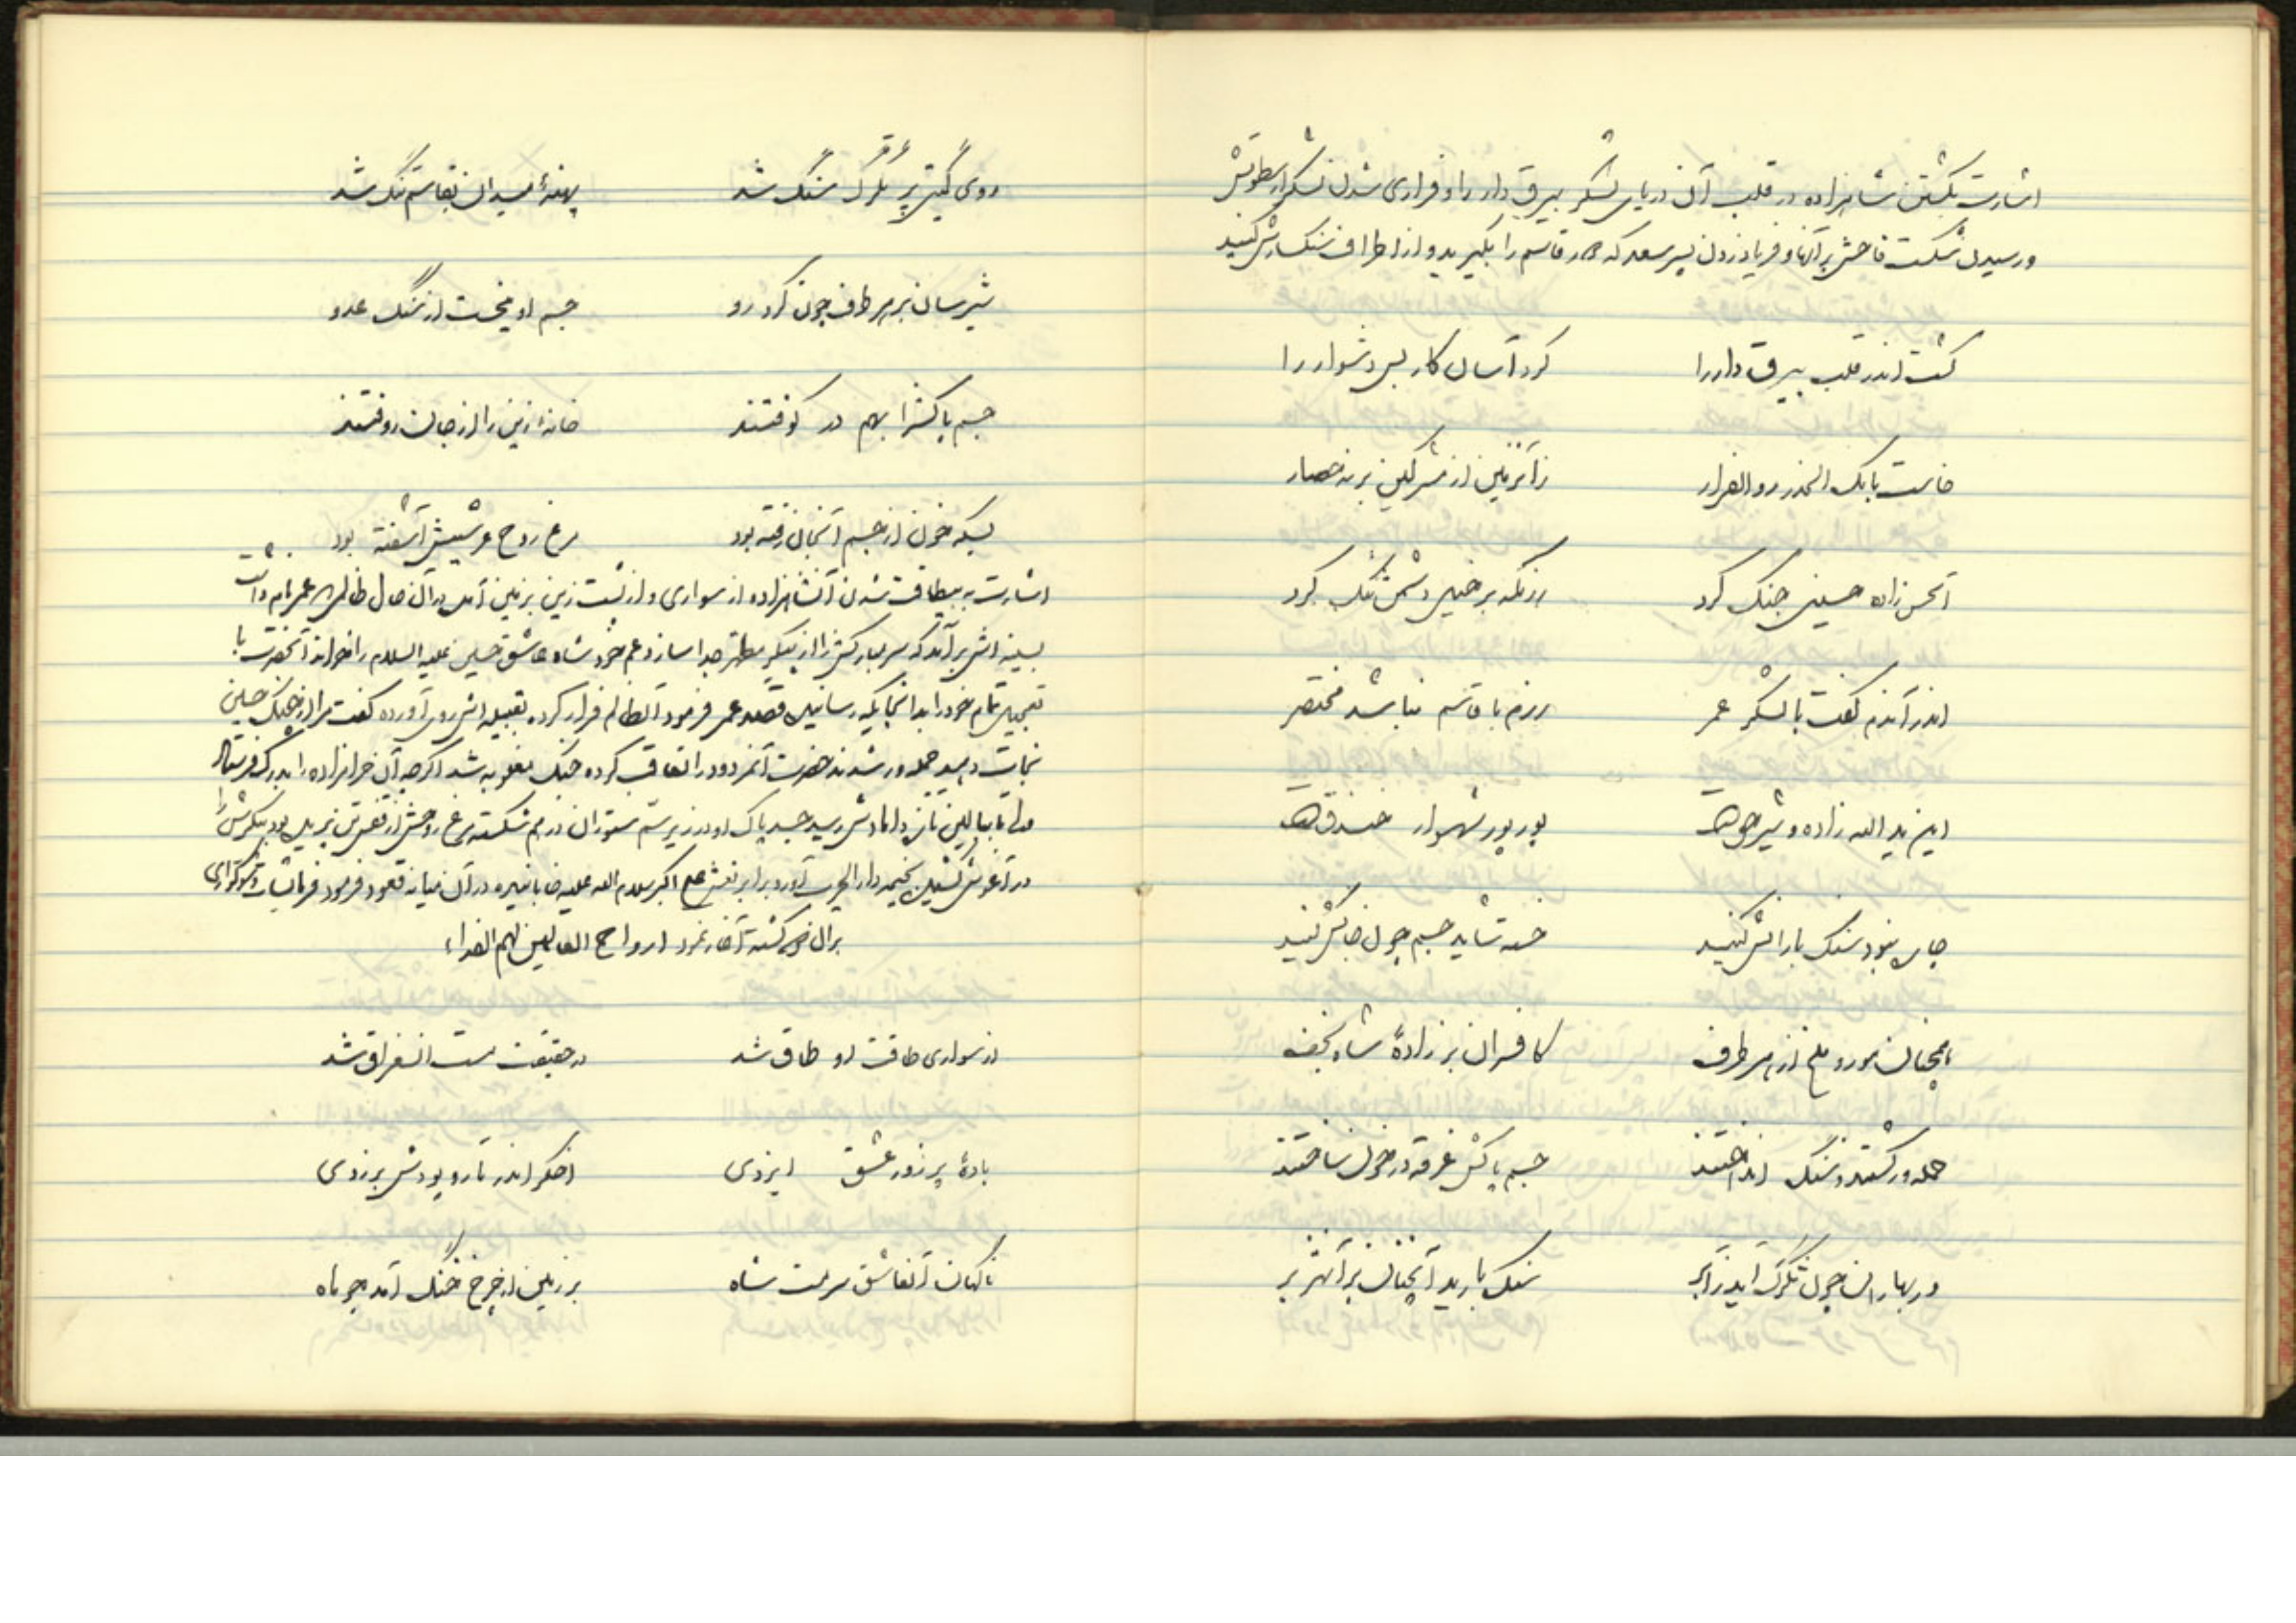 اشارت بکشتن شاهزاده در قلب آن دریای لشگر بیرق دار را و فراری شدن لشگر از سطوتش
و رسیدن شکست فاحش بر آنها و فریاد زدن پسر سعد که دور قاسم را بگیرید و از اطراف سنگبارش کنید
کشت اندر قلب بیرق دار را کرد آسان کار بس دشوار را
خاست بانک الحذر رو الفرار زآنزمین از مشرکین بر نه حصار
آنحسن زاده حسینی جنک کرد رزمگه بر خیل دشمن تنک کرد
اندر آندم گفت با لشگر عمر رزم با قاسم نباشد مختصر
این ید الله زاده و شیر خداست پور پور شهسوار خندق است
چاره نبود سنک بارانش کنید خسته شاید جسم چون جانش کنید
همچنان مور و ملخ از هر طرف کافران بر زادهٔ شاه نجف
حمله ور گشتند و سنک انداختند جسم پاکش غرقه در خون ساختند
در بهاران چون تگرک آید ز ابر سنک بارید آنچنان بر آن هژبر
روی گیتی پر تگرک سنک شد پهنهٔ میدان بقاسم تنگ شد
شیرسان بر هر طرف چون کرد رو جسم او میخست از سنگ عدو
جسم پاکش را بهم در کوفتند خانهٔ زین را از جان روفتند
بسکه خون از جسم آنجان رفته بود مرغ روح عرشیش آشفته بود
اشارت به بیطاقت شدن آنشاهزاده از سواری و از پشت زین بر زمین آمدن در آن حال ظالمی عمر نام
بسینه اش بر آمد که سر مبارکش را از پیکر مطهر جدا سازد عم خود شاه عاشق حسین علیه السلام را خواند آنحضرت با
تعجیل تمام خود را بدانجایگه رسانیده قصد عمر فرمود آنظالم فرار کرده بقبیله اش روی آورده گفت مرا از جنک حسین
نجات دهید حمله ور شدند حضرت آنمردود را کرده جنک مغلوبه شد اگرچه آن حرامزاده را بدرک فرستاد
اما تا ببالین داماد رسید جسد پاک او در زیر سم ستوران در هم شکسته مرغ روحش از قفس تن بود پیکرش را
در آغوش کشیده بخیمه دار الحرب آورد برابر نعش علی اکبر سلام الله علیه در آن میانه قعود فرمود
بر آن کشته آغاز نمود ارواح العالمین لهم الفداء
از سواری طاقت او طاق شد در حقیقت مست شد
بادهٔ پر زور عشق ایزدی اخگر اندر تار و پودش بر زدی
ناگهان آنعاشق سرمست شاه بر زمین از چرخ خنگ آمد چو ماه